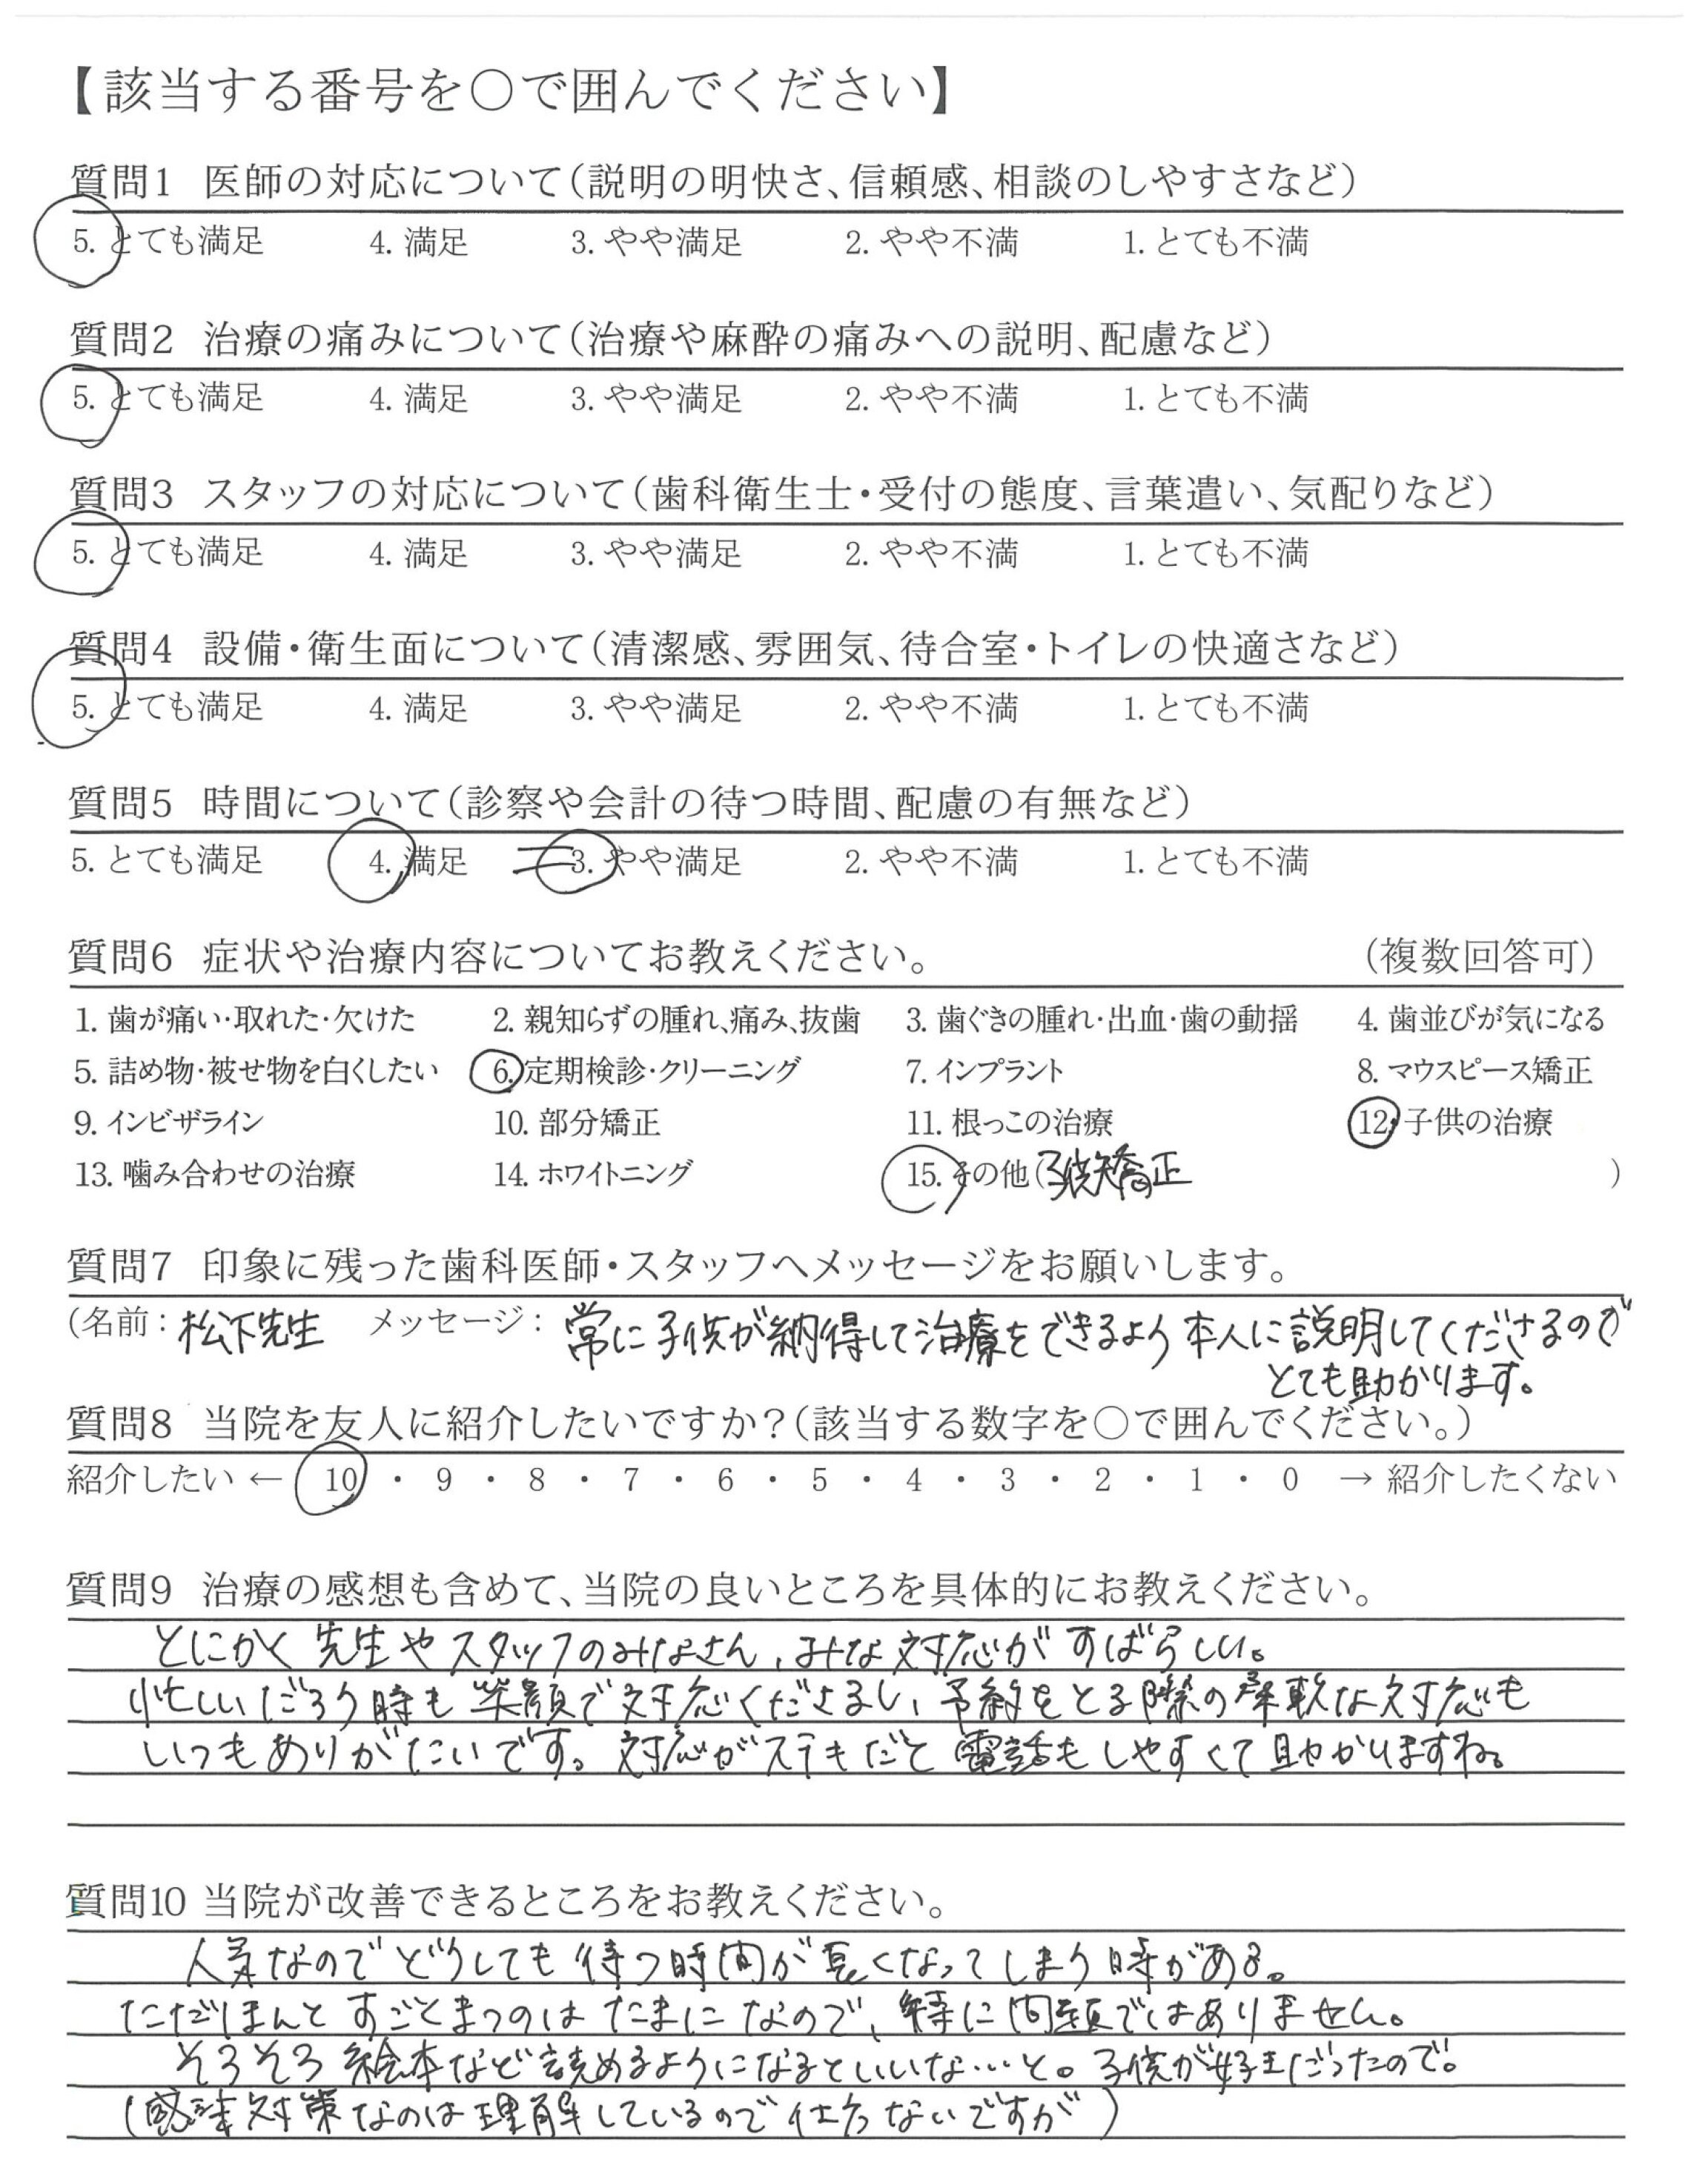 【該当する番号を〇で囲んでください】
質問1 医師の対応について(説明の明快さ、信頼感、相談のしやすさなど)
5. とても満足 4. 満足 3. やや満足 2. やや不満 1. とても不満
質問2 治療の痛みについて(治療や麻酔の痛みへの説明、配慮など)
5. とても満足 4. 満足 3. やや満足 2. やや不満 1. とても不満
質問3 スタッフの対応について(歯科衛生士・受付の態度、言葉遣い、気配りなど)
5. とても満足 4. 満足 3. やや満足 2. やや不満 1. とても不満
質問4 設備・衛生面について(清潔感、雰囲気、待合室・トイレの快適さなど)
5. とても満足 4. 満足 3. やや満足 2. やや不満 1. とても不満
質問5 時間について(診察や会計の待つ時間、配慮の有無など)
5. とても満足 4. 満足 3. やや満足 2. やや不満 1. とても不満
質問6 症状や治療内容についてお教えください。 (複数回答可)
1. 歯が痛い・取れた・欠けた 2. 親知らずの腫れ、痛み、抜歯 3. 歯ぐきの腫れ・出血・歯の動揺 4. 歯並びが気になる
5. 詰め物・被せ物を白くしたい 6. 定期検診・クリーニング 7. インプラント 8. マウスピース矯正
9. インビザライン 10. 部分矯正 11. 根っこの治療 12. 子供の治療
13. 噛み合わせの治療 14. ホワイトニング 15. その他(子供矯正 )
質問7 印象に残った歯科医師・スタッフへメッセージをお願いします。
(名前: 松下先生 メッセージ: 常に子供が納得して治療をできるよう本人に説明してくださるので
とても助かります。
質問8 当院を友人に紹介したいですか?(該当する数字を〇で囲んでください。)
紹介したい ← 10 ・ 9 ・ 8 ・ 7 ・ 6 ・ 5 ・ 4 ・ 3 ・ 2 ・ 1 ・ 0 → 紹介したくない
質問9 治療の感想も含めて、当院の良いところを具体的にお教えください。
とにかく先生やスタッフのみなさん、みな対応がすばらしい。
忙しいだろう時も笑顔で対応くださるし、予約をとる際の柔軟な対応も
いつもありがたいです。対応がステキだと電話もしやすくて助かりますね。
質問10 当院が改善できるところをお教えください。
人気なのでどうしても待つ時間が長くなってしまう時がある。
ただほんと すごとまつのは たまに なので、特に問題ではありません。
そろそろ絵本など読めるようになるといいな…と。子供が好きだったので。
(感染対策なのは理解しているので仕方ないですが)